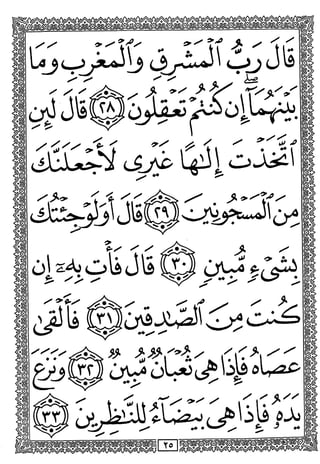 قَالَ رَبُّ الْمَشْرِقِ وَالْمَغْرِبِ وَمَا
بَيْنَهُمَا ۖ إِن كُنتُمْ تَعْقِلُونَ ﴿٢٨﴾ قَالَ لَئِنِ
اتَّخَذْتَ إِلَٰهًا غَيْرِي لَأَجْعَلَنَّكَ
مِنَ الْمَسْجُونِينَ ﴿٢٩﴾ قَالَ أَوَلَوْ جِئْتُكَ
بِشَيْءٍ مُّبِينٍ ﴿٣٠﴾ قَالَ فَأْتِ بِهِ إِن
كُنتَ مِنَ الصَّادِقِينَ ﴿٣١﴾ فَأَلْقَىٰ
عَصَاهُ فَإِذَا هِيَ ثُعْبَانٌ مُّبِينٌ ﴿٣٢﴾ وَنَزَعَ
يَدَهُ فَإِذَا هِيَ بَيْضَاءُ لِلنَّاظِرِينَ ﴿٣٣﴾
٢٥